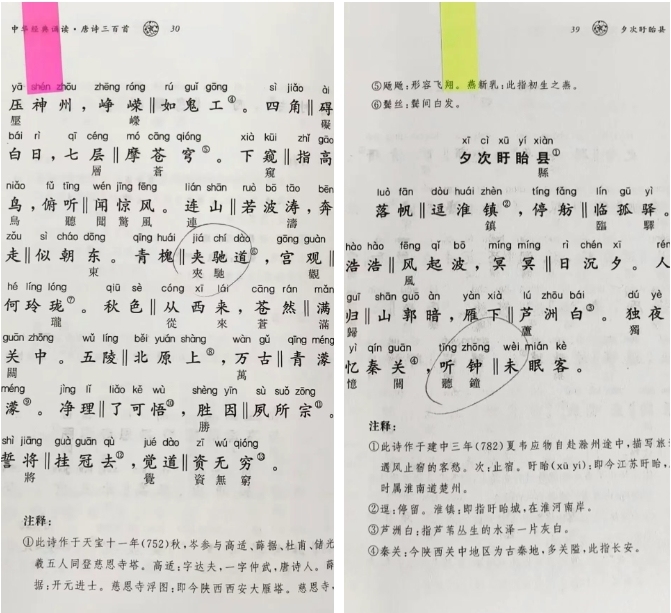 中华经典诵读·唐诗三百首 30
yā shén zhōu zhēng róng rú guǐ gōng sì jiǎo ài
压神州，峥嵘‖如鬼工④。四角‖碍
壓 嶸 礙
bái rì qī céng mó cāng qióng xià kuī zhǐ gāo
白日，七层‖摩苍穹⑤。下窥‖指高
層 蒼 窺
niǎo fǔ tīng wén jīng fēng lián shān ruò bō tāo bēn
鸟，俯听‖闻惊风。连山‖若波涛，奔
鳥 聽 聞 驚 風 連 濤
zǒu sì cháo dōng qīng huái jiá chí dào gōng guàn
走‖似朝东。青槐‖夹驰道⑥，宫观‖
東 夾 馳 觀
hé líng lóng qiū sè cóng xī lái cāng rán mǎn
何玲珑⑦。秋色‖从西来，苍然‖满
瓏 從 來 蒼 滿
guān zhōng wǔ líng běi yuán shàng wàn gǔ qīng méng
关中。五陵‖北原上⑧，万古‖青濛
關 萬
méng jìng lǐ liǎo kě wù shèng yīn sù suǒ zōng
濛⑨。净理‖了可悟⑩，胜因‖夙所宗⑪。
勝
shì jiāng guà guān qù jué dào zī wú qióng
誓将‖挂冠去⑫，觉道‖资无穷⑬。
將 覺 資 無 窮
注释：
①此诗作于天宝十一年(752)秋，岑参与高适、薛据、杜甫、储光
羲五人同登慈恩寺塔。高适：字达夫，一字仲武，唐诗人。薛
据：开元进士。慈恩寺浮图：即今陕西西安大雁塔。慈恩寺，
39 夕次盱眙县
⑤飏飏：形容飞翔。燕新乳：此指初生之燕。
⑥鬓丝：鬓间白发。
xī cì xū yí xiàn
夕次盱眙县①
縣
luò fān dòu huái zhèn tíng fǎng lín gū yì
落帆‖逗淮镇②，停舫‖临孤驿。
鎮 臨 驛
hào hào fēng qǐ bō míng míng rì chén xī rén
浩浩‖风起波，冥冥‖日沉夕。人
風
guī shān guō àn yàn xià lú zhōu bái dú yè
归‖山郭暗，雁下‖芦洲白③。独夜‖
歸 蘆 獨
yì qín guān tīng zhōng wèi mián kè
忆秦关④，听钟‖未眠客。
憶 關 聽 鐘
注释：
①此诗作于建中三年(782)夏韦应物自赴滁州途中，描写旅
遇风止宿的客愁。次：止宿。盱眙(xū yí)：即今江苏盱眙，
时属淮南道楚州。
②逗：停留。淮镇：即指盱眙城，在淮河南岸。
③芦洲白：指芦苇丛生的水泽一片灰白。
④秦关：今陕西关中地区为古秦地，多关隘，此指长安。